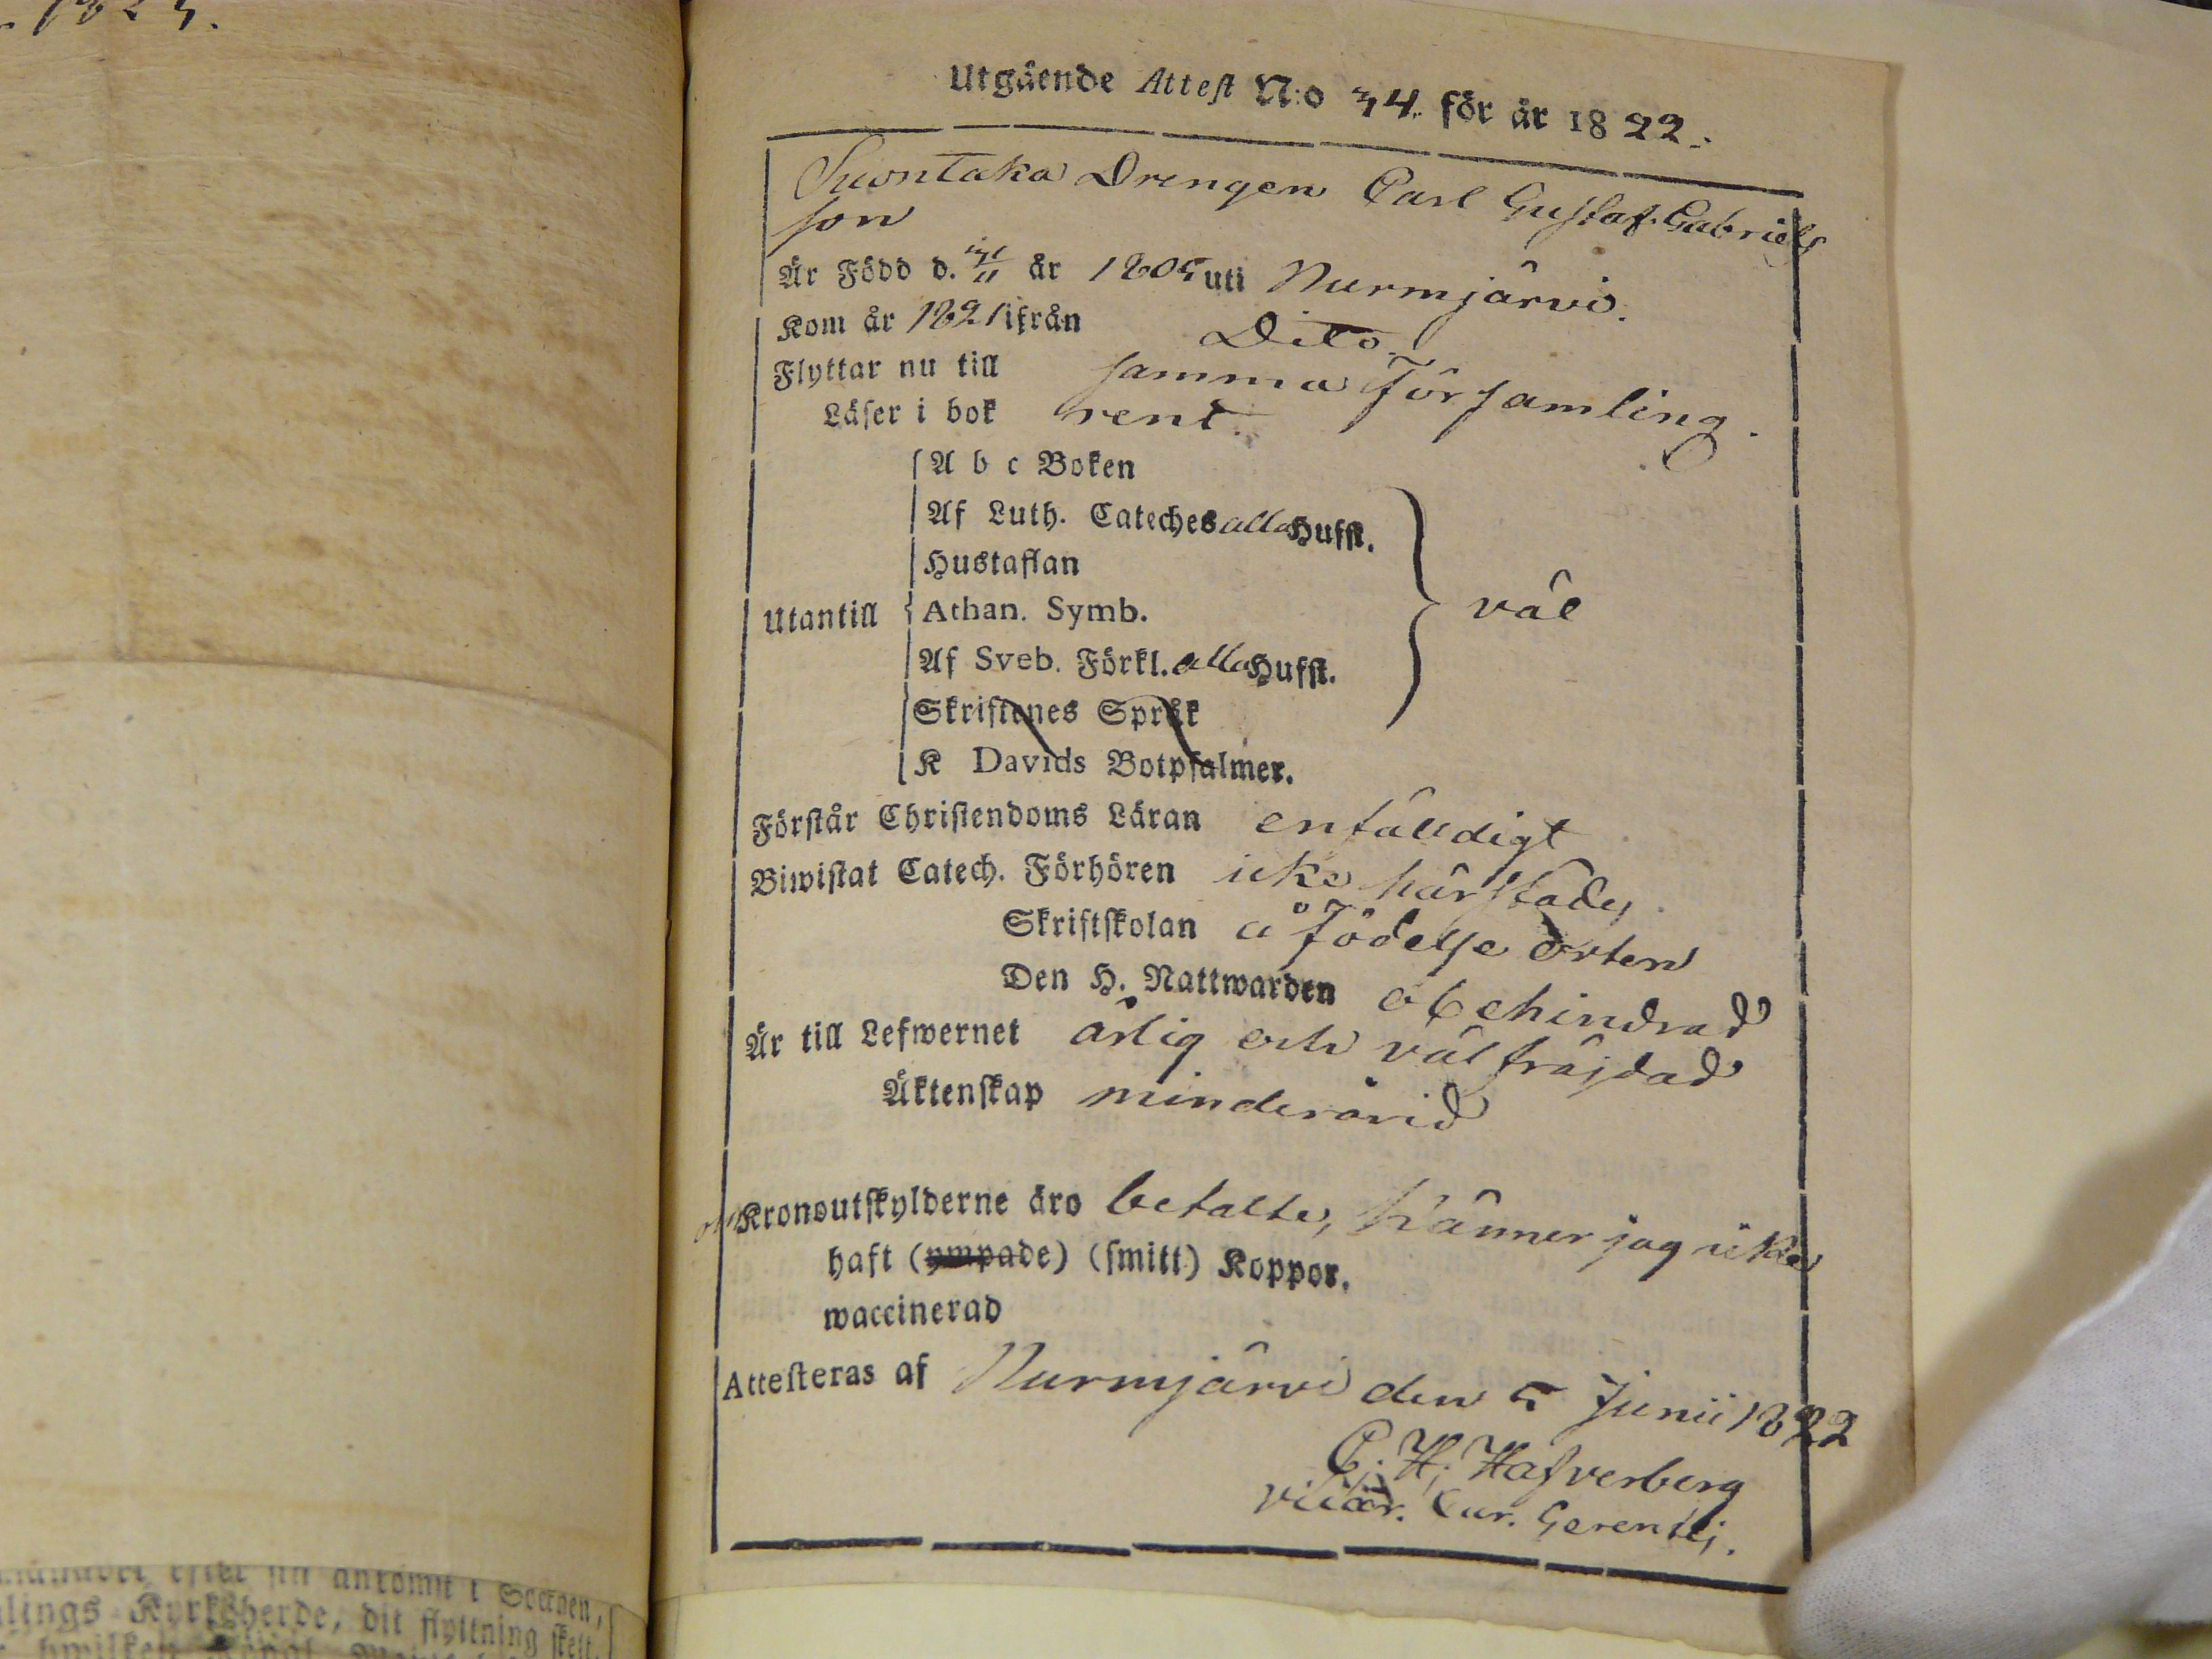 1824.
Utgående Attest N:o 34. för år 1822.
Suontaka Drengen Carl Gustaf Gabriels
son
Är Född d. 21/11 år 1805 uti Nurmjärvi.
Kom år 1821 ifrån Dito
Flyttar nu till samma Församling.
Läser i bok rent
A b c Boken
Af Luth. Cateches alla Hufst.
Hustaflan
Utantill Athan. Symb. väl
Af Sveb. Förkl. alla Hufst.
Skriftenes Språk
K Davids Botpsalmer.
Förstår Christendoms Läran enfäldigt
Biwistat Catech. Förhören icke härstädes
Skriftskolan å födelse orten
Den H. Nattwarden obehindrad
Är till Lefwernet ärlig och välfräjdad
Äktenskap minderårid
om Kronoutskylderne äro betalte, känner jag icke
haft (ympade) (smitt) Koppor.
waccinerad
Attesteras af Nurmjärvi den 5 Junii 1822
C. H. Hafverberg
Vicar. Cur. Gerentis.
efter sin ankomst i Socknen,
lings Kyrkoherde, dit flyttning skett,
hwilken